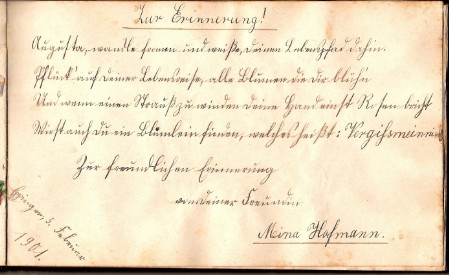 Zur Erinnerung!
Augusta, wandle fromm und weiße, deinen Lebenspfad dahin.
Pflück' auf deiner Lebensreise, alle Blumen die dir blüh'n
Und wenn einen Strauß zu winden deine Hand einst Rosen bricht
Wirst auch du ein Blümlein finden, welches heißt: Vergißmeinnicht
Zur freundlichen Erinnerung
von deiner Freundin
Mina Hofmann.
5. Februar
1901.